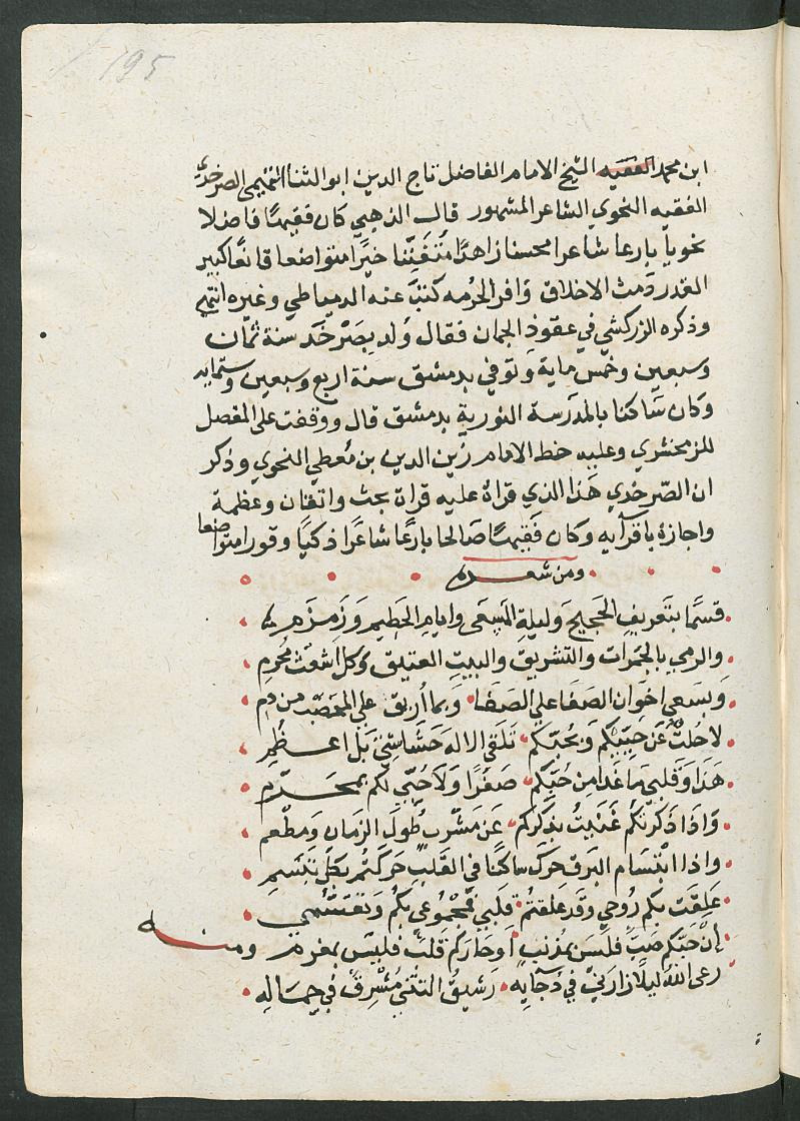 195
ابن محمد الفقيه الشيخ الامام الفاضل تاج الدين ابو الثنا التميمى الصرخدي
الفقيه النحوي الشاعر المشهور قال الذهبي كان فقيهًا فاضلا
نحوياً بارعا شاعرا محسنا زاهدًا مُتعَفِّفنا خيرًا متواضعا قانعًا كبير
القدر دَمث الاخلاق وَافر الحُرمه كتبَ عنه الدمياطي وغيره انتهى
وذكره الزركشي في عقود الجمان فقال وُلد بِصَرْخَد سنة ثمَّان
وسبعين وخمس ماية وتوفي بدمشق سنة اربع وسبعين وستمايه
وكان سَاكنا بالمدرسة النورية بدمشق قال ووقفت على المفصل
للزمخشري وعليه خط الامام زين الدين بن مُعطي النحوي وذكر
ان الصّرخدي هَذا الذي قراهُ عليه قراة بحث واتقان وعظمة
واجازة باقرآيه وكان فقيهًا صَالحا بارعًا شاعرًا ذكيًا وقورا متواضعا
ومن شعره
قسمًا بتَعريفِ الحَجيج وَليلةِ المَسعَى وايامِ الحَطِيمِ وَزَمزَمِ
والرمي بالجَمرات والتشريق والبيتِ العتيق وكل اشعَث مُحرِمِ
وَبسَعي اخوَان الصَفَا على الصَفَا وَبما اُريق على المحَصّب من دمِ
لا حُلتُ عَن حُبّيكم وَبحُبّكم تَلقَى الاله حَشَاشتِي بَل اعظُمِ
هَذا وَقلبي مَا غدا من حُبّكم صَفرًا وَلا حُبّي لكم بمحَرّم
وَاذا ذكرتكم غَنيتُ بذكركم عَن مَشرب طُولَ الزمَان وَمطعم
واذا ابتسَام البَرق حرك ساكنًا في القَلب حَركتُم بكلِّ تبَسّمِ
عَلِقَت بكم رُوحي وقد علقتم قلبي فجمُوعي بكم وَتقسّمي
إن حبّكم صَبّ فلَيسَ بمُذنب اَو حَازكم قلبٌ فليسَ بمغرم ومنه
رعى الله ليلًا زارنى في دَجَايه رَشيقُ التثنّي مُشرِقٌ في جمَالهِ